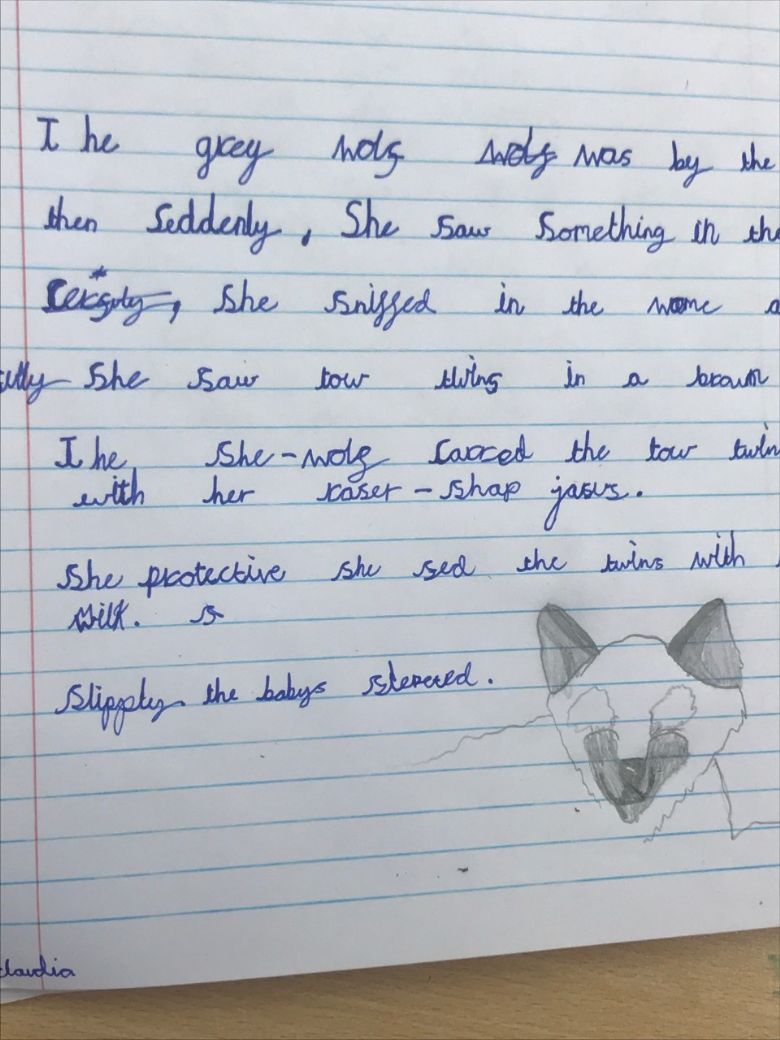 The grey wolf wolf was by the
then seddenly, She saw something in the
she sniffed in the
she saw tow twins in a brown
The she-wolf carred the tow twin
with her raser-shap jasws.
she protective she fed the twins with
milk. s
Slipply the babys sterered.
claudia